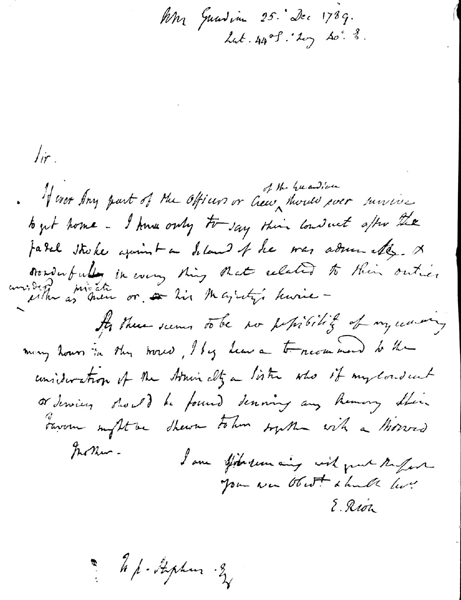 HM Guardian 25: Dec 1789.
Lat. 44°S. Long 40°. E.
Sir.
If ever any part of the Officers or Crew of the Guardian should ever survive
to get home - I have only to say their conduct after the
fatal stroke against an Island of Ice was admirable &
wonderful in every thing that related to their duties
considered either as private Men or in his Majesty's Service -
As there seems to be no possibility of my remaining
many hours in this world, I beg leave to recommend to the
consideration of the Admiralty a Sister who if my conduct
or Services should be found deserving any Memory their
favour might be shewn to her together with a Widowed
Mother.
I am Sir remaining with great Respect
your ever Obedt. & humble Servt.
E. Riou
Ph. Stephens. Esqr